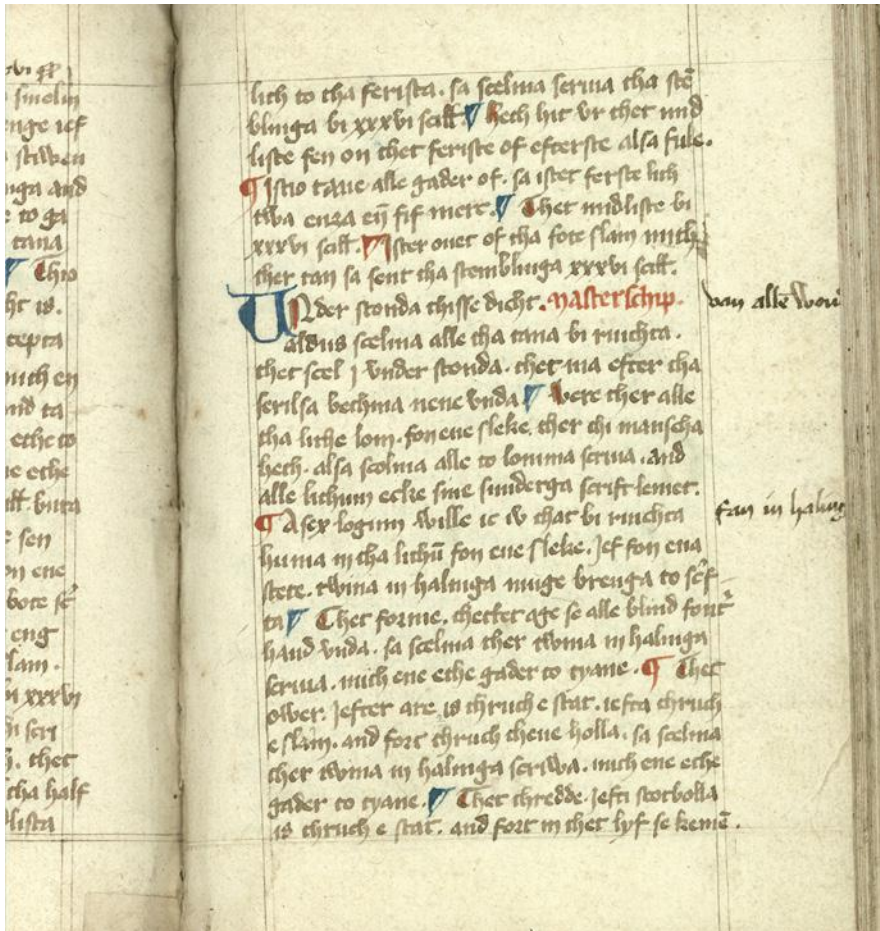 vi
smelin
enge ief
stiwen
nga and
to ga
tana
¶ Thio
ht is.
cepta
mith en
nd ta
ethe to
e ethe
buta
sen
on ene
bote
eng
lam.
xxxvi
scri
thet
tha half
lista
lich to tha ferista. sa scelma scriua tha stē
blinga bi xxxvi scill. ¶ hech hit vr thet mid
liste fen on thet feriste of efterste alsa fule.
¶ Istio tane alle gader of. sa istet ferste lich
twa enza en fif merc. ¶ Thet midliste bi
xxxvi scill. ¶ Ister onet of tha fote slain mith
ther tan sa sent tha stemblinga xxxvi scill.
UNder stonda thisse dicht. masterschip.
aldus scelma alle tha tana bi riuchta.
thet scel j vnder stonda. thet ma efter tha
ferilsa bechma nene vnda ¶ were ther alle
tha lithe lom. fon ene sleke. ther thi manscha
hech. alsa scolma alle to lomma scriua. and
alle lichum ecke sine sunderga scrift lemet.
¶ Asex logum wille ic iv that bi riuchta
huma in tha lichū fon ene sleke. Jef fon ena
stete. twina in halinga muge brenga to scf
ta ¶ Thet forme. thetter age se alle blind font
hand vnda. sa scelma ther twina in halinga
scriua. mith ene ethe gader to tyane. ¶ Thet
ower. Jefter are is thruch e stat. iefta thruch
e slain. and fort thruch thene holla. sa scelma
ther twina in halinga scriwa. mith ene ethe
gader to tyane. ¶ Thet thredde. Jefti strotbolla
is thruch e stat. and fort in thet lyf se kemē.
van alle wou
fan in haling